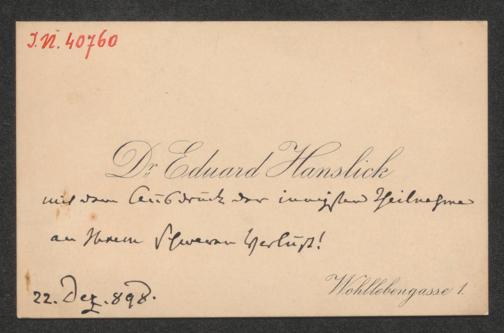 I.N. 40760
Dr Eduard Hanslick
mit dem Ausdruck der innigsten Theilnahme
an Ihrem schweren Verlust!
Wohllebengasse 1.
22. Dez. 898.